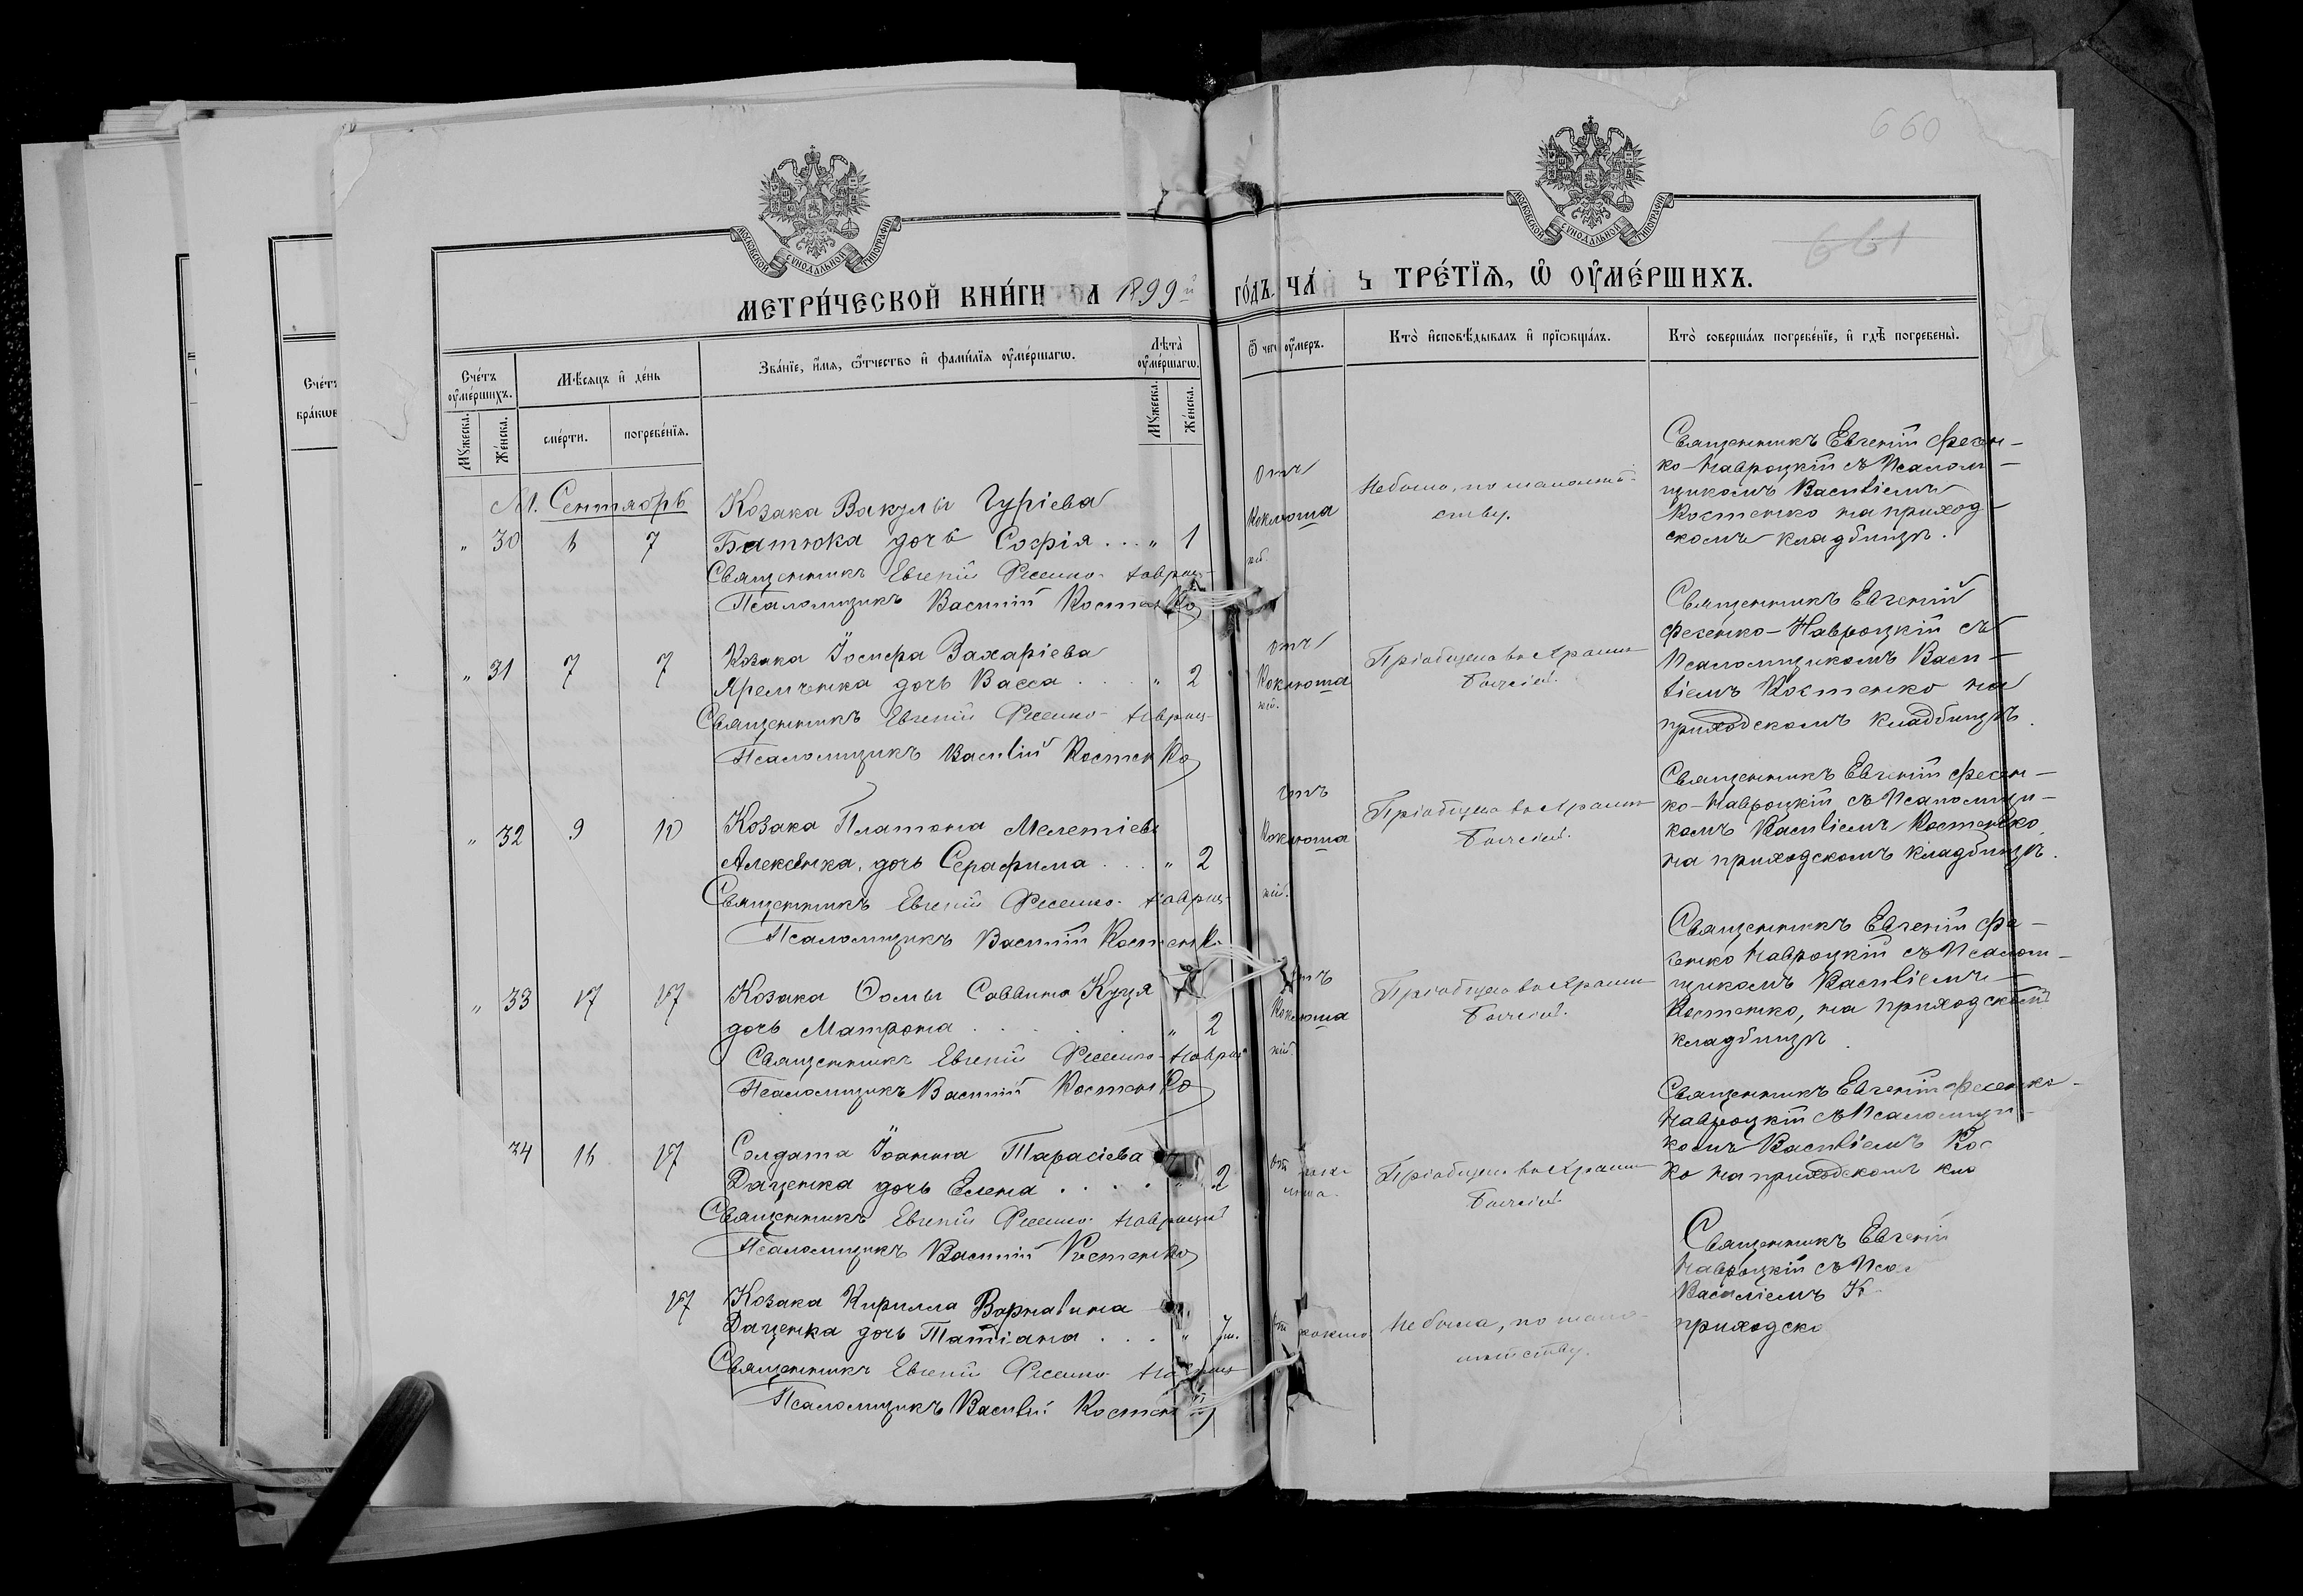 660
661
МОСКОВСКОЙ СУНОДАЛЬНОЙ ТИПОГРАФІИ
МОСКОВСКОЙ СУНОДАЛЬНОЙ ТИПОГРАФІИ
МЕТРИ́ЧЕСКОЙ КНИ́ГИ 1899й
ГО́ДЪ, ТРЕ́ТЇѦ, Ѡ ОУ҆МЕ́РШИХЪ.
Сче́тъ оу҆ме́ршихъ.
Мѣ́сѧцъ и҆ де́нь
Зва́нїе, и҆́мѧ, ѻ҆́тчество и҆ фами́лїѧ оу҆ме́ршагѡ.
Лѣ́та оу҆ме́ршагѡ.
Мꙋ́жеска.
Же́нска.
сме́рти.
погребе́нїѧ.
Мꙋ́жеска.
Же́нска.
Ѿ чегѡ̀ оу҆́меръ.
Кто̀ и҆сповѣ́дывалъ и҆ прїѡбща́лъ.
Кто̀ соверша́лъ погребе́нїе, и҆ гдѣ̀ погребены̀.
Сче́тъ
бра́кѡвъ
М. Сентябрь
Козака Вакулы Гурієва
" 30 6 7 Батюка дочь Софія . . . " 1
Священникъ Евгеній Фесенко-Навроц-
Псаломщикъ Василій Костенко
отъ
Коклюша
Небыло, по малолѣт-
ству.
Священникъ Евгеній Фесен-
ко-Навроцкій съ Псалом-
щикомъ Василіемъ
Костенко на приход-
скомъ кладбищѣ.
" 31 7 7 Козака Іосифа Захаріева
Яременка дочь Васса . . . " 2
Священникъ Евгеній Фесенко-Навроц-
Псаломщикъ Василій Костенко
отъ
Коклюша
кій.
Пріобщена во Храмѣ
Божіей.
Священникъ Евгеній
Фесенко-Навроцкій съ
Псаломщикомъ Васи-
ліемъ Костенко на
приходскомъ кладбищѣ.
" 32 9 10 Козака Платона Мелетіева
Алексѣнка, дочь Серафима . . . " 2
Священникъ Евгеній Фесенко-Навроц-
Псаломщикъ Василій Костенко
отъ
Коклюша
кій.
Пріобщена во Храмѣ
Божіей.
Священникъ Евгеній Фесен-
ко-Навроцкій съ Псаломщи-
комъ Василіемъ Костенко
на приходскомъ кладбищѣ.
" 33 17 17 Козака Ѳомы Саввина Куця
дочь Матрона . . . . . " 2
Священникъ Евгеній Фесенко-Навроц
Псаломщикъ Василій Костенко
отъ
Коклюша
кій.
Пріобщена во Храмѣ
Божіей.
Священникъ Евгеній Фе-
сенко Навроцкій съ Псалом-
щикомъ Василіемъ
Костенко, на приходском
кладбищѣ.
34 16 17 Солдата Іоанна Тарасіева
Даценка дочь Елена . . . . . " 2
Священникъ Евгеній Фесенко-Навроцкій
Псаломщикъ Василій Костенко
от кок-
люша.
Пріобщена во Храмѣ
Божіей
Священникъ Евгеній Фесенко-
Навроцкій съ Псаломщи-
комъ Василіемъ Кос
ко на приходскомъ кла
17 Козака Кирилла Варнавина
Даценка дочь Татіана . . . " 7м.
Священникъ Евгеній Фесенко-Навроц
Псаломщикъ Василій Костен
от коклю
Небыла, по мало-
лѣтству.
Священникъ Евгеній
Навроцкій съ Пса
Василіемъ К
приходско